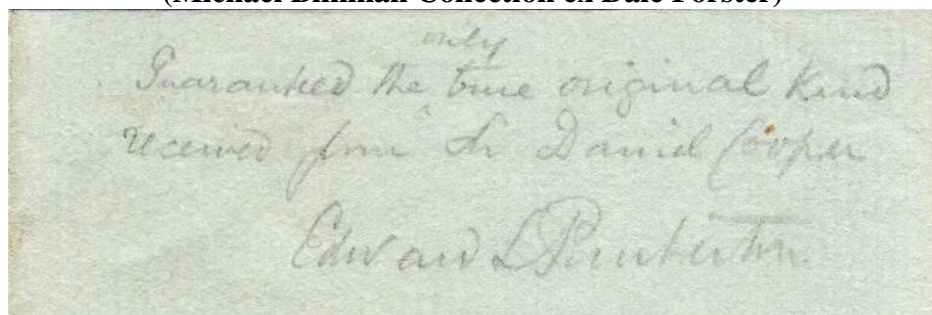 (Michael Dinman Collection ex Dale Forster)
only
Guaranteed the ^ true original kind
received from Sir Daniel Cooper
Edward L Pemberton